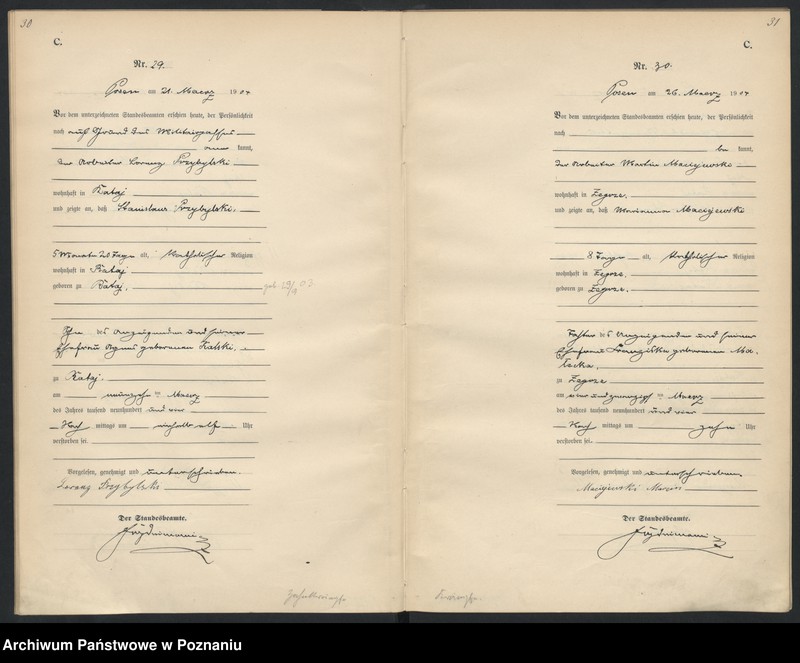 30
C.
Nr. 29.
Posen am 21. Maerz 1904
Vor dem unterzeichneten Standesbeamten erschien heute, der Persönlichkeit
nach auf Grund des Militairpasses
kannt,
der Arbeiter Lorenz Przybylski
wohnhaft in Rataj
und zeigte an, daß Stanislaus Przybylski,
5 Monate 20 Tage alt, katholischer Religion
wohnhaft in Rataj
geboren zu Rataj,
geb. 29/9 03.
Sohn des Anzeigenden und seiner
Ehefrau Agnes geborenen
zu Rataj.
am neunzehn ten Maerz
des Jahres tausend neunhundert und vier
Nach mittags um elf Uhr
verstorben sei.
Vorgelesen, genehmigt und unterschrieben.
Lorenz Przybylski
Der Standesbeamte.
31
C.
Nr. 30.
Posen am 26. Maerz 1904
Vor dem unterzeichneten Standesbeamten erschien heute, der Persönlichkeit
nach
be kannt,
der Arbeiter Martin Maciejewski
wohnhaft in Zegrze.
und zeigte an, daß Marianna Maciejewski
8 Tage alt, katholischer Religion
wohnhaft in Zegrze.
geboren zu Zegrze.
Tochter des Anzeigenden und seiner
Ehefrau Franziska geborenen
zu Zegrze
am und zwanzigsten Maerz
des Jahres tausend neunhundert und vier
Nach mittags um zehn Uhr
verstorben sei.
Vorgelesen, genehmigt und unterschrieben.
Maciejewski Marcin
Der Standesbeamte.
Zahnkrämpfe
Krämpfe.
Archiwum Państwowe w Poznaniu